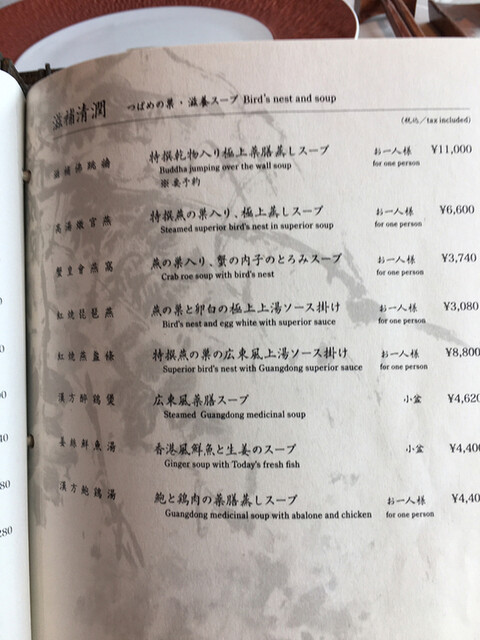 滋補清潤 つばめの巣・滋養スープ Bird's nest and soup
(税込/tax included)
滋補佛跳牆 特撰乾物入り極上薬膳蒸しスープ お一人様 ¥11,000
Buddha jumping over the wall soup for one person
※要予約
高湯燉官燕 特撰燕の巣入り、極上蒸しスープ お一人様 ¥6,600
Steamed superior bird's nest in superior soup for one person
蟹皇會燕窩 燕の巣入り、蟹の内子のとろみスープ お一人様 ¥3,740
Crab roe soup with bird's nest for one person
紅焼琵琶燕 燕の巣と卵白の極上上湯ソース掛け お一人様 ¥3,080
Bird's nest and egg white with superior sauce for one person
紅焼燕盞條 特撰燕の巣の広東風上湯ソース掛け お一人様 ¥8,800
Superior bird's nest with Guangdong superior sauce for one person
漢方醉鶏煲 広東風薬膳スープ 小盆 ¥4,620
Steamed Guangdong medicinal soup
姜絲鮮魚湯 香港風鮮魚と生姜のスープ 小盆 ¥4,40
Ginger soup with Today's fresh fish
漢方鮑鶏湯 鮑と鶏肉の薬膳蒸しスープ お一人様 ¥4,40
Guangdong medicinal soup with abalone and chicken for one person
0
0
00
40
80
280